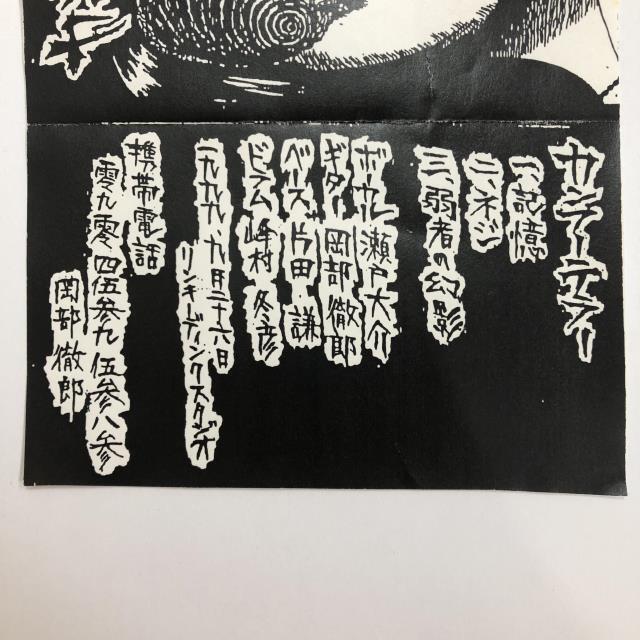 一、記憶
二、ネジ
三、弱者の幻影
ボーカル 瀬戸大介
ギター 岡部徹郎
ベース 片田 謙
ドラム 峰村 冬彦
一九九九、九月二十六日
リンキーディンクスタジオ
携帯電話
零九零 四伍参九 伍参八参
岡部徹郎